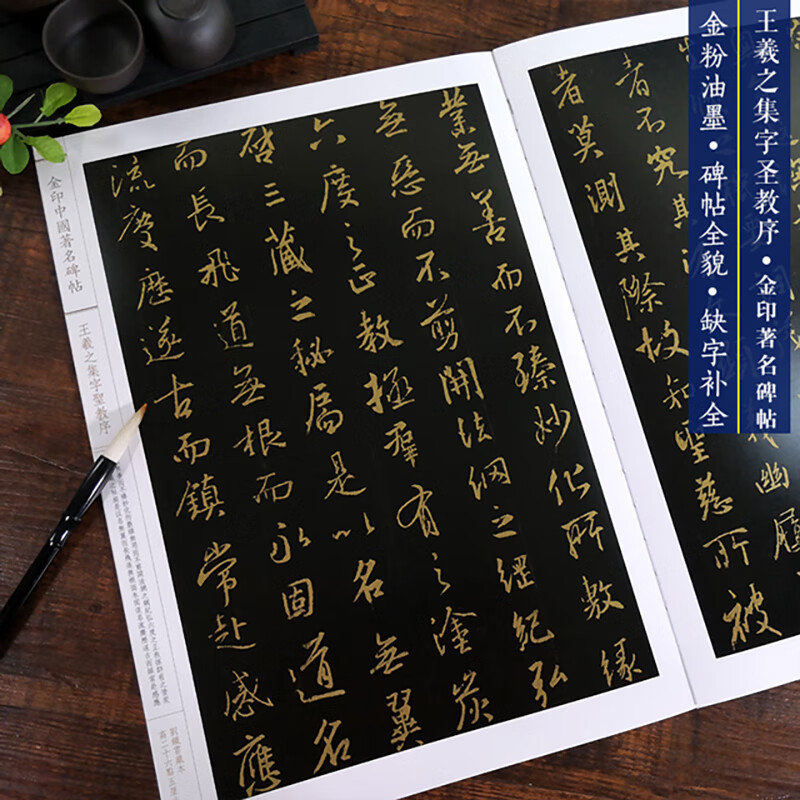 王羲之集字圣教序•金印著名碑帖
金粉油墨•碑帖全貌•缺字补全
者不究其
者莫測其際故知聖慈所被
業無善而不臻妙化所敷緣
無惡而不剪開法網之綱紀弘
六度之正教拯群有之塗炭
啓三藏之秘扃是以名無翼
而長飛道無根而永固道名
流慶歷遂古而鎮常赴感應
金印中國著名碑帖
王羲之集字聖教序
劉鐵雲藏本
高二十六點五厘